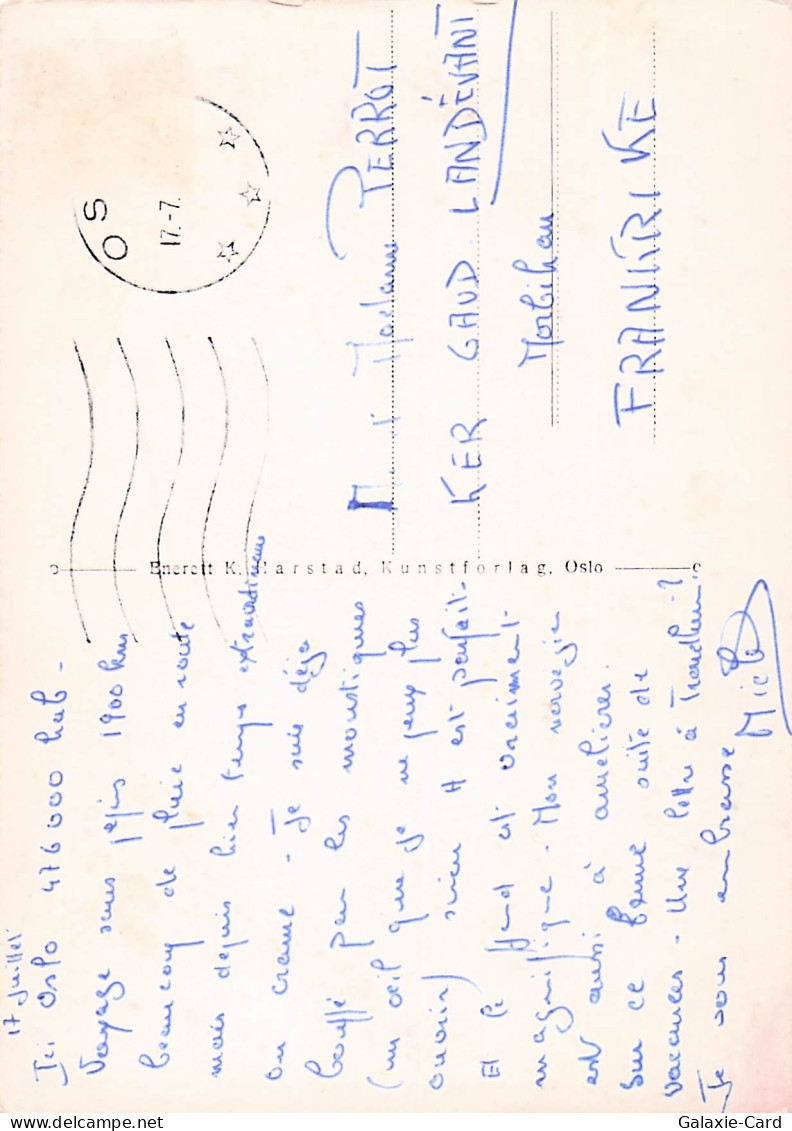 17 Juillet
Ici Oslo 476 000 hab -
Voyage sans pépins 1900 kms
beaucoup de pluie en route
mais depuis hier temps extraordinaire
on crame - Je suis déjà
bouffé par les moustiques
(un oeil que je ne peux plus
ouvrir) sinon tt est parfait -
Et le fjord est vraiment
magnifique - Mon norvégien
est aussi à améliorer.
Sur ce bonne suite de
vacances - Une lettre à Trondheim - ?
Je vous embrasse
OS
17.-7.
Enerett K. Harstad, Kunstforlag, Oslo
Madame PERROT
KER GAUD. LANDÉVANT
Morbihan
FRANKRIKE
Galaxie-Card